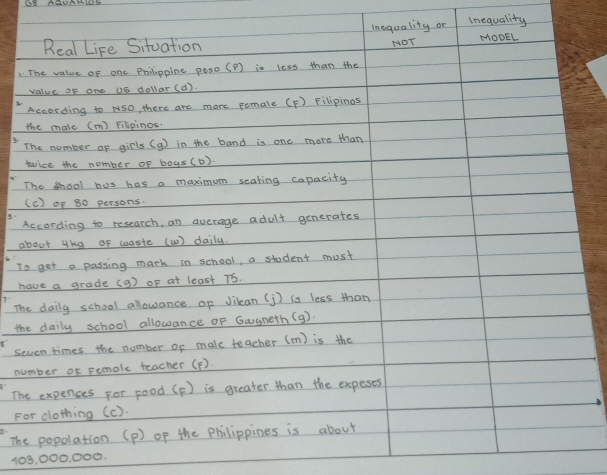 G8 AQUARIUS
Real Life Situation
Inequality or NOT
Inequality MODEL
1. The value of one Philippine peso (P) is less than the
value of one US dollar (d).
2. According to NSO, there are more female (F) Filipinos
the male (m) Filipinos.
3. The number of girls (g) in the band is one more than
twice the number of boys (b).
4. The shool bus has a maximum seating capacity
(c) of 80 persons.
5. According to research, an average adult generates
about 4kg of waste (w) daily.
6. To get a passing mark in school, a student must
have a grade (g) of at least 75.
7. The daily school allowance of Jikan (j) is less than
the daily school allowance of Gwyneth (g).
8. Seven times the number of male teacher (m) is the
number of Female teacher (F).
9. The expences For food (F) is greater than the expeses
For clothing (c).
10. The popolation (p) of the Philippines is about
103,000,000.